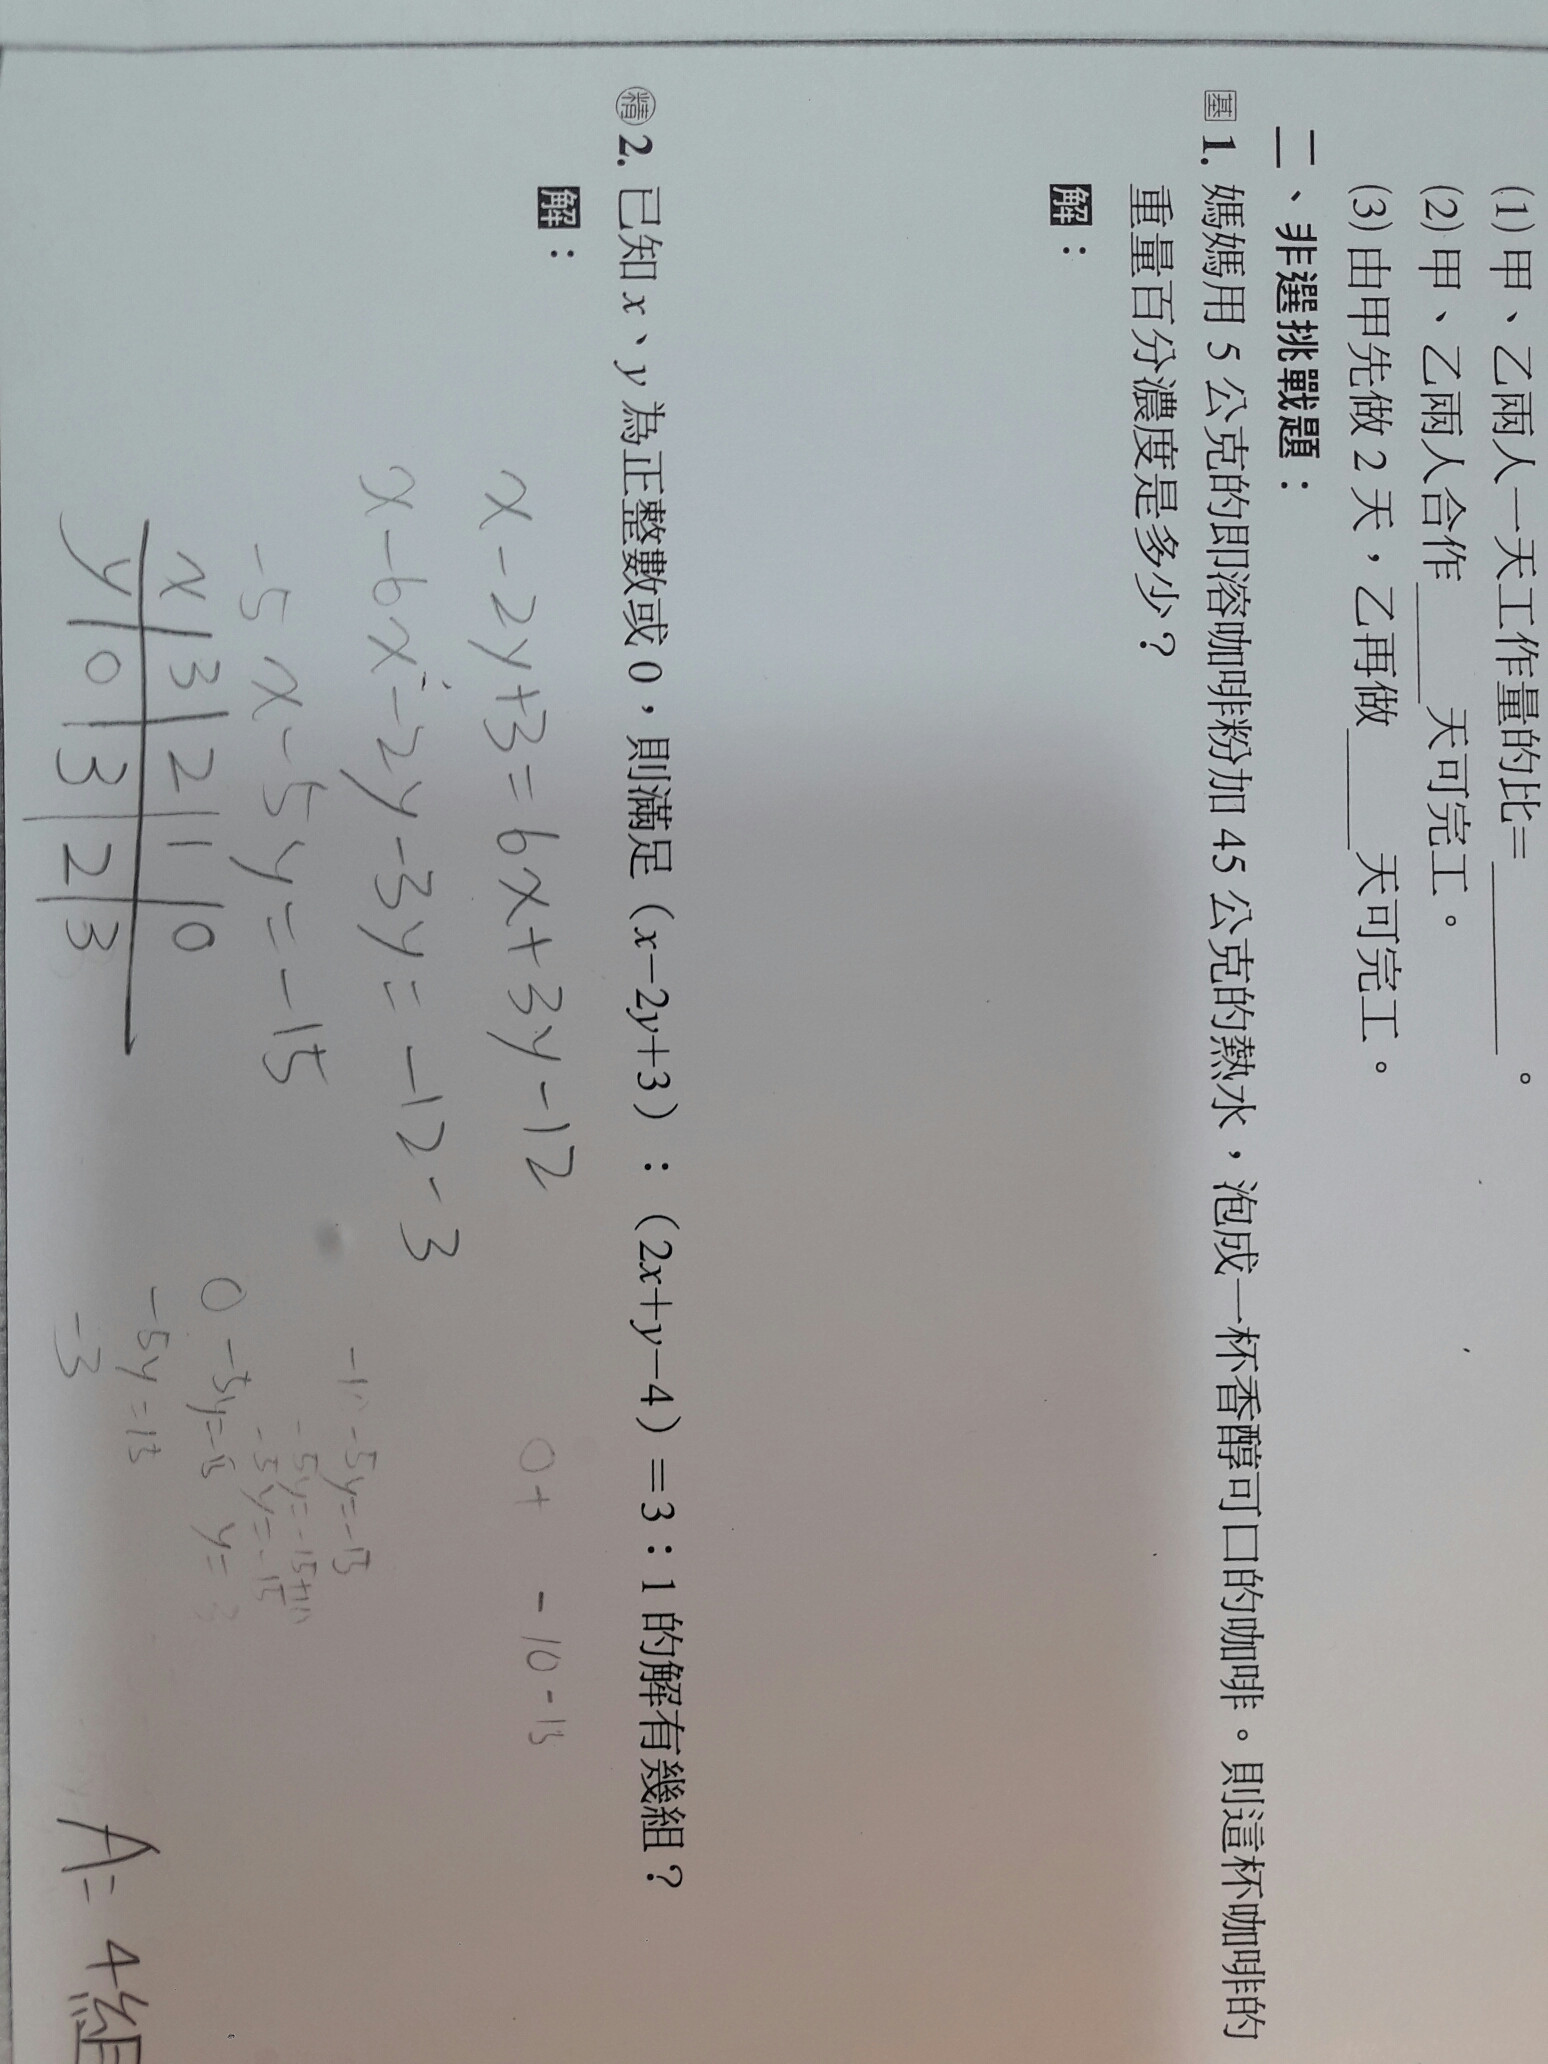 (1) 甲、乙兩人一天工作量的比=＿＿＿＿。
(2) 甲、乙兩人合作＿＿＿天可完工。
(3) 由甲先做 2 天，乙再做＿＿＿天可完工。
二、非選挑戰題：
基 1. 媽媽用 5 公克的即溶咖啡粉加 45 公克的熱水，泡成一杯香醇可口的咖啡。則這杯咖啡的
重量百分濃度是多少？
解：
精 2. 已知 x、y 為正整數或 0，則滿足（x−2y+3）：（2x+y−4）=3：1 的解有幾組？
解：
x-2y+3=6x+3y-12
0+ -10-15
x-6x-2y-3y=-12-3
-5x-5y=-15
-5y=-15
-5y=-15+10
-5y=-15
0-5y=-15 y=3
x 3 2 1 0
y 0 3 2 3
-5y=15
-3
A=4組